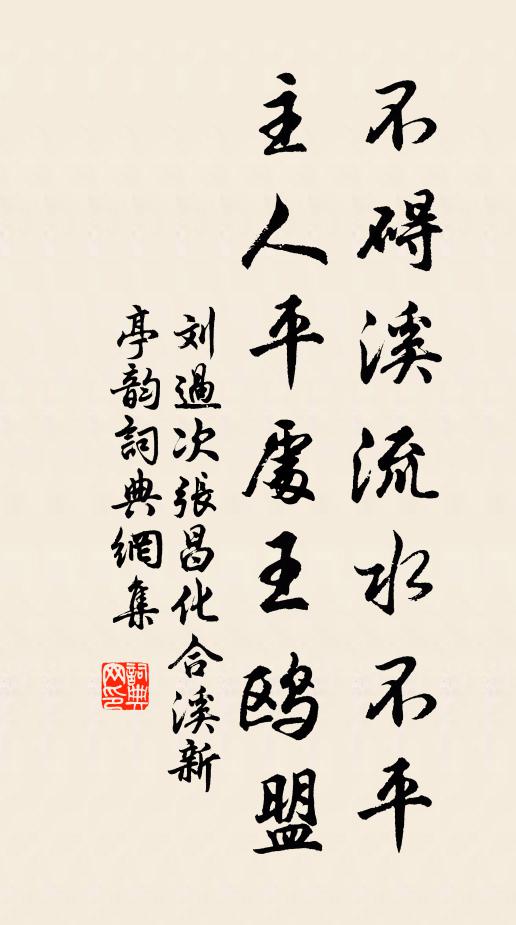 不碍溪流水不平
主人平處王鸥盟
刘過次張昌化合溪新
亭韵詞典網集
詞典网印